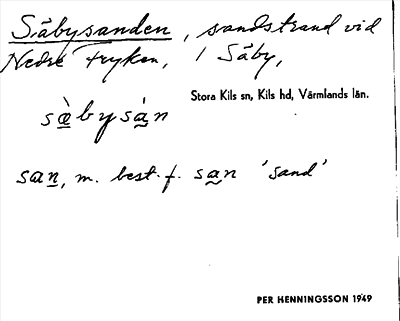 Säbysanden, sandstrand vid
Nedre Fryken, i Säby,
Stora Kils sn, Kils hd, Värmlands län.
sæ̀bysàn
san, m. best. f. san 'sand'
PER HENNINGSSON 1949